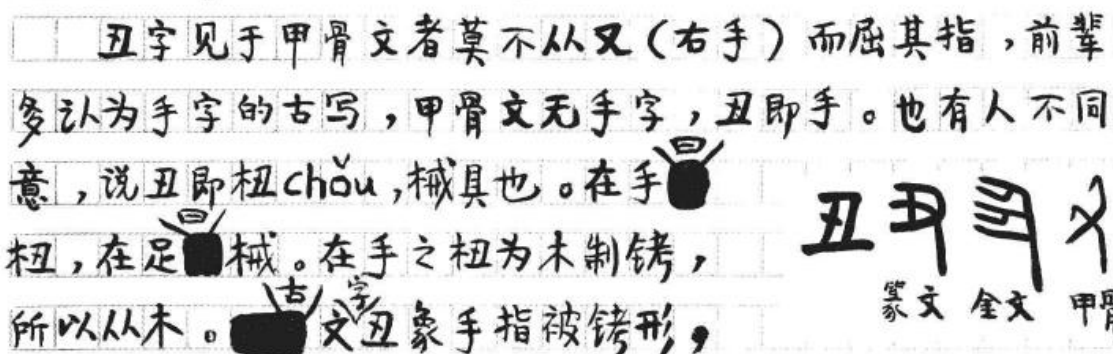 丑字见于甲骨文者莫不从又(右手)而屈其指,前辈
多认为手字的古写,甲骨文无手字,丑即手。也有人不同
意,说丑即杻chǒu,械具也。在手曰
杻,在足曰械。在手之杻为木制铐,
所以从木。古文丑字象手指被铐形,
丑
篆文 金文 甲骨